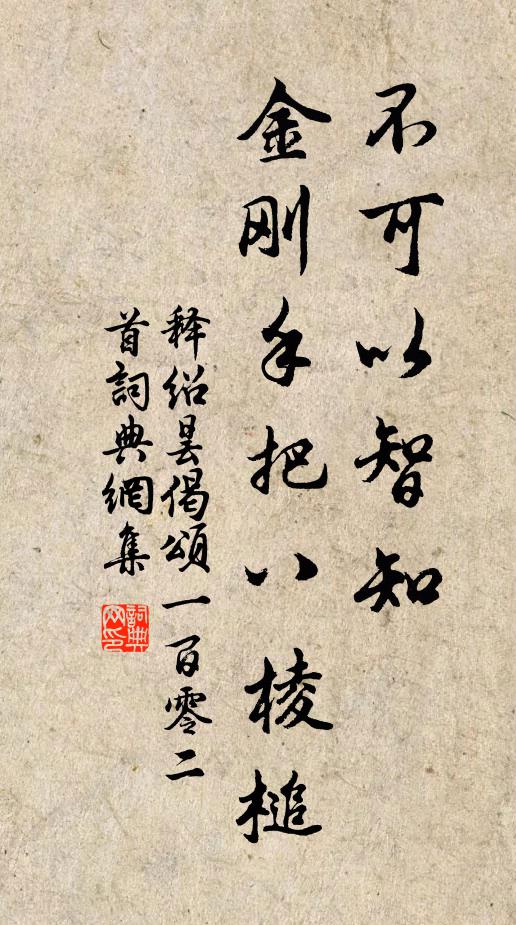 不可以智知
金刚手把八棱槌
释绍昙偈颂一百零二
首词典網集
詞典网印